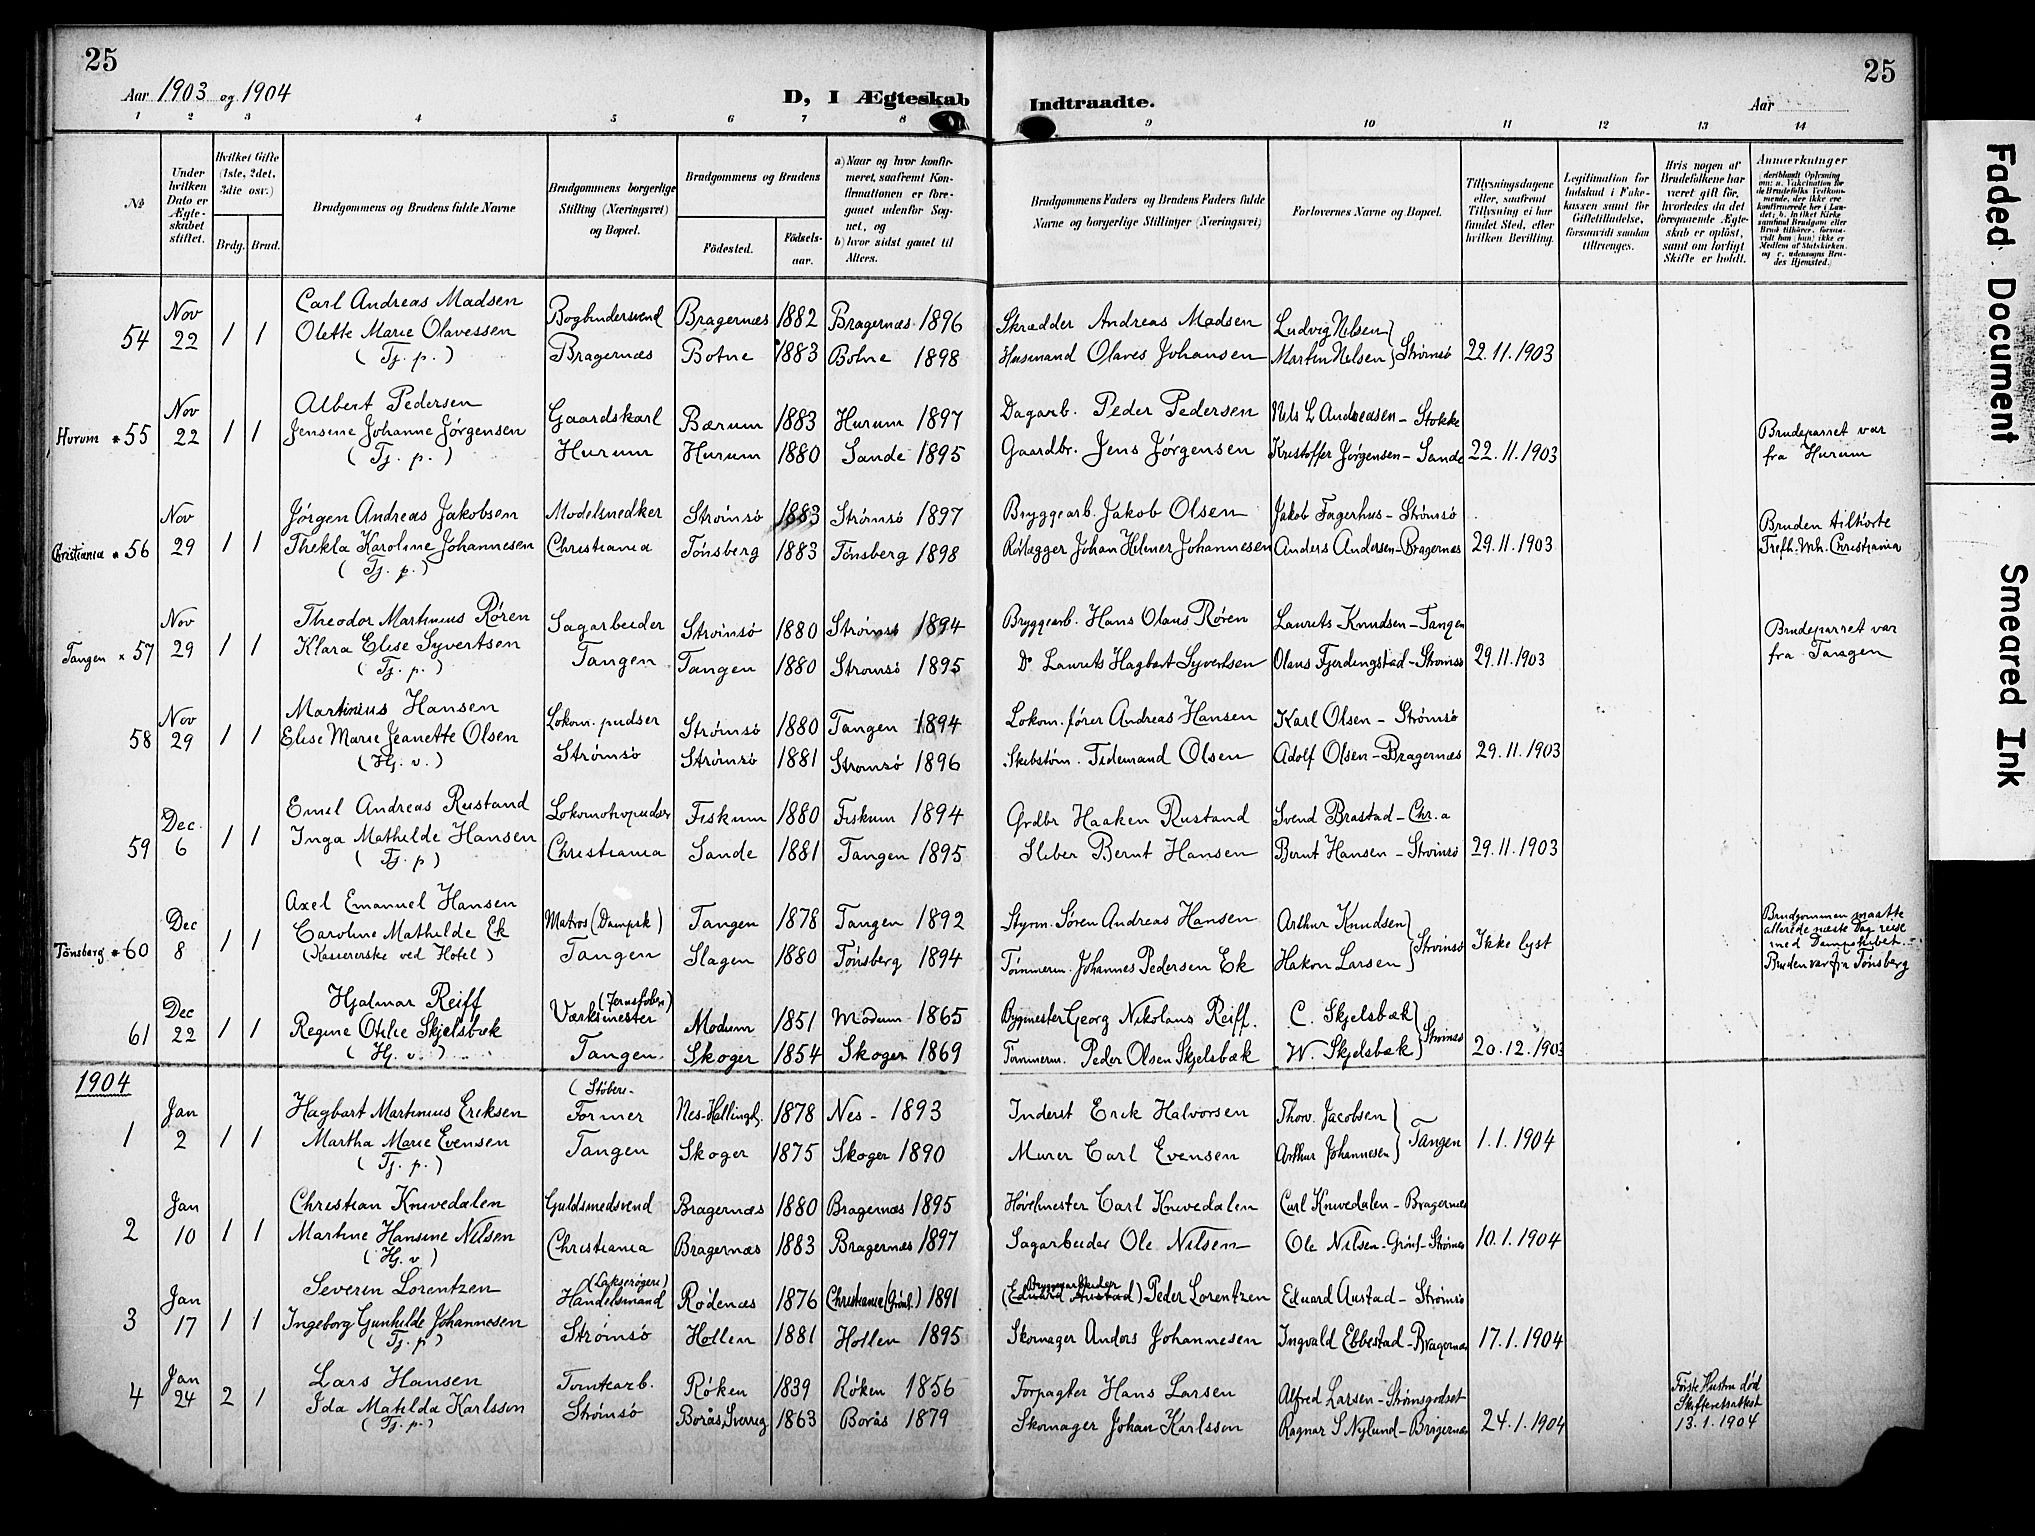 25
Aar 1903 og 1904
D, I Ægteskab Indtraadte.
Aar
25
1 2 3 4 5 6 7 8 9 10 11 12 13 14
No
Under hvilken Dato er Ægteskabet stiftet.
Hvilket Gifte (1ste, 2det, 3die osv.)
Brdg. Brud.
Brudgommens og Brudens fulde Navne
Brudgommens borgerlige Stilling (Næringsvei) og Bopæl.
Brudgommens og Brudens
Födested.
Födselsaar.
a) Naar og hvor konfirmeret, saafremt Konfirmationen er foregaaet udenfor Sognet, og
b) hvor sidst gaaet til Alters.
Brudgommens Faders og Brudens Faders fulde Navne og borgerlige Stillinger (Næringsvei)
Forlovernes Navne og Bopæl.
Tillysningsdagene eller, saafremt Tillysning ei har fundet Sted, efter hvilken Bevilling.
Legitimation for Indskud i Enkekassen samt for Giftetilladelse, forsaavidt saadan tiltrænges.
Hvis nogen af Brudefolkene har været gift før, hvorledes da det foregaaende Ægteskab er opløst, samt om lovligt Skifte er holdt.
Anmerkninger
54 Nov 22 1 1
Carl Andreas Madsen Bogbindersvend Bragernæs 1882 Bragernæs 1896 Skrædder Andreas Madsen Ludvig Nilsen
Olette Marie Olavessen Bragernæs Botne 1883 Botne 1898 Husmand Olaves Johansen Martin Nilsen Strømsö 22.11.1903
(Tj. p.)
Hurum 55 Nov 22 1 1
Albert Pedersen Gaardskarl Bærum 1883 Hurum 1897 Dagarb. Peder Pedersen Nils L Andreasen - Stokke
Jensine Johanne Jørgensen Hurum Hurum 1880 Sande 1895 Gaardbr. Jens Jørgensen Kristoffer Jørgensen - Sande 22.11.1903
(Tj. p.)
Brudeparret var
fra Hurum
Christiania 56 Nov 29 1 1
Jørgen Andreas Jakobsen Modelsnedker Strömsö 1883 Strømsö 1897 Bryggearb. Jakob Olsen Jakob Fagerhus - Strømsö
Thekla Karoline Johannesen Christiania Tönsberg 1883 Tönsberg 1898 Rörlægger Johan Hilmer Johannesen Anders Andersen - Bragernæs 29.11.1903
(Tj. p.)
Bruden tilhörte
Trefh. Mh. Christiania
Tangen x 57 Nov 29 1 1
Theodor Martinius Røren Sagarbeider Strömsö 1880 Strömsö 1894 Bryggearb. Hans Olaus Rören Laurits Knudsen - Tangen
Klara Elise Syvertsen Tangen Tangen 1880 Strömsö 1895 Do Laurits Hagbart Syvertsen Olaus Fjerdingstad - Strömsö 29.11.1903
(Tj. p.)
Brudeparret var
fra Tangen
58 Nov 29 1 1
Martinius Hansen Lokom. pudser Strömsö 1880 Tangen 1894 Lokom. fører Andreas Hansen Karl Olsen - Strömsö
Elise Marie Jeanette Olsen Strömsö Strømsö 1881 Strömsö 1896 Skibstøm. Tidemand Olsen Adolf Olsen - Bragernæs 29.11.1903
(Hj. v.)
59 Dec. 6 1 1
Emil Andreas Rustand Lokomotivpudser Fiskum 1880 Fiskum 1894 Grdbr Haaken Rustand Svend Brastad - Chr.a
Inga Mathilde Hansen Christiania Sande 1881 Tangen 1895 Sliber Bernt Hansen Bernt Hansen - Strömsö 29.11.1903
(Tj. p)
Tönsberg 60 Dec 8 1 1
Axel Emanuel Hansen Matros (Dampsk) Tangen 1878 Tangen 1892 Styrm. Søren Andreas Hansen Arthur Knudsen
Caroline Mathilde Ek Tangen Slagen 1880 Tönsberg 1894 Tömmerm. Johannes Pedersen Ek Hakon Larsen Strömsö Ikke lyst
(Kassererske ved Hotel)
Brudgommen maatte
allerede næste Dag reise
med Dampskibet. -
Bruden var fra Tönsberg
61 Dec 22 1 1
Hjalmar Reiff Værksmester Modum 1851 Modum 1865 Bygmester Georg Nikolaus Reiff. C. Skjelsbæk
Regine Otilie Skjelsbæk Tangen. Skoger 1854 Skoger 1869 Tømmerm. Peder Olsen Skjelsbæk W. Skjelsbæk Strömsö 20.12.1903
(Hj. v.)
1904
1 Jan 2 1 1
(Støberi-
Hagbart Martinius Eriksen Former Nes-Hallingd. 1878 Nes - 1893 Inderst Erik Halvorsen Thorv. Jacobsen
Martha Marie Evensen Tangen Skoger 1875 Skoger 1890 Murer Carl Evensen Arthur Johannesen Tangen 1.1.1904
(Tj. p.)
2 Jan 10 1 1
Christian Knivedalen Guldsmedsvend Bragernæs 1880 Bragernæs 1895 Høvelmester Carl Knivedalen Carl Knivedalen - Bragernæs
Martine Hansine Nilsen Christiania Bragernæs 1883 Bragernæs 1897 Sagarbeider Ole Nilsen Ole Nilsen - Grönl - Strömsö 10.1.1904
(Hj. v)
3 Jan 17 1 1
(Lakserøgeri) Bryggearbeider
Severin Lorentzen Handelsmand Rödenæs 1876 Christiania (Grönl.) 1891 (Eduard Austad) Peder Lorentzen Eduard Austad - Strømsö
Ingeborg Gunhilde Johannesen Strømsö Hollen 1881 Hollen 1895 Skomager Anders Johannesen Ingvald Ebbestad - Bragernæs 17.1.1904
(Tj. p)
4 Jan 24 2 1
Lars Hansen Tomtearb. Røken 1839 Røken 1856 Forpagter Hans Larsen Alfred Larsen - Strømsgodset
Ida Matilda Karlsson Strømsö Borås, Sverrig 1863 Borås 1879 Skomager Johan Karlsson Ragnar S Nylund - Bragernæs 24.1.1904
(Tj. p.)
Første Hustru död
Skifteretsattest
13.1.1904
Faded Document
Smeared Ink